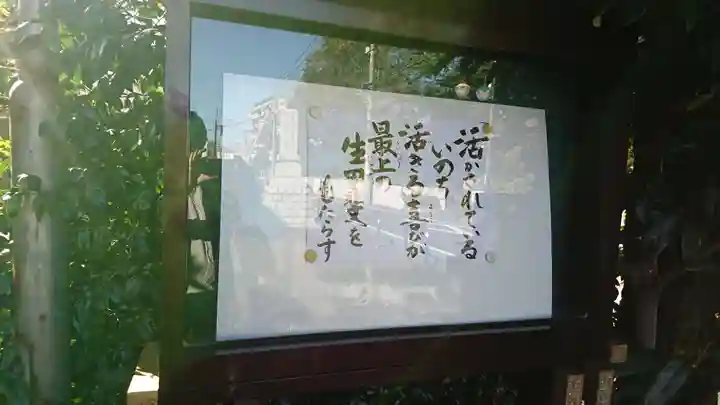 活かされている
いのち
活きる喜びが
最上の
生甲斐を
もたらす